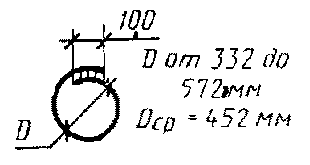 100
D от 332 до
572 мм
Dср = 452 мм
D